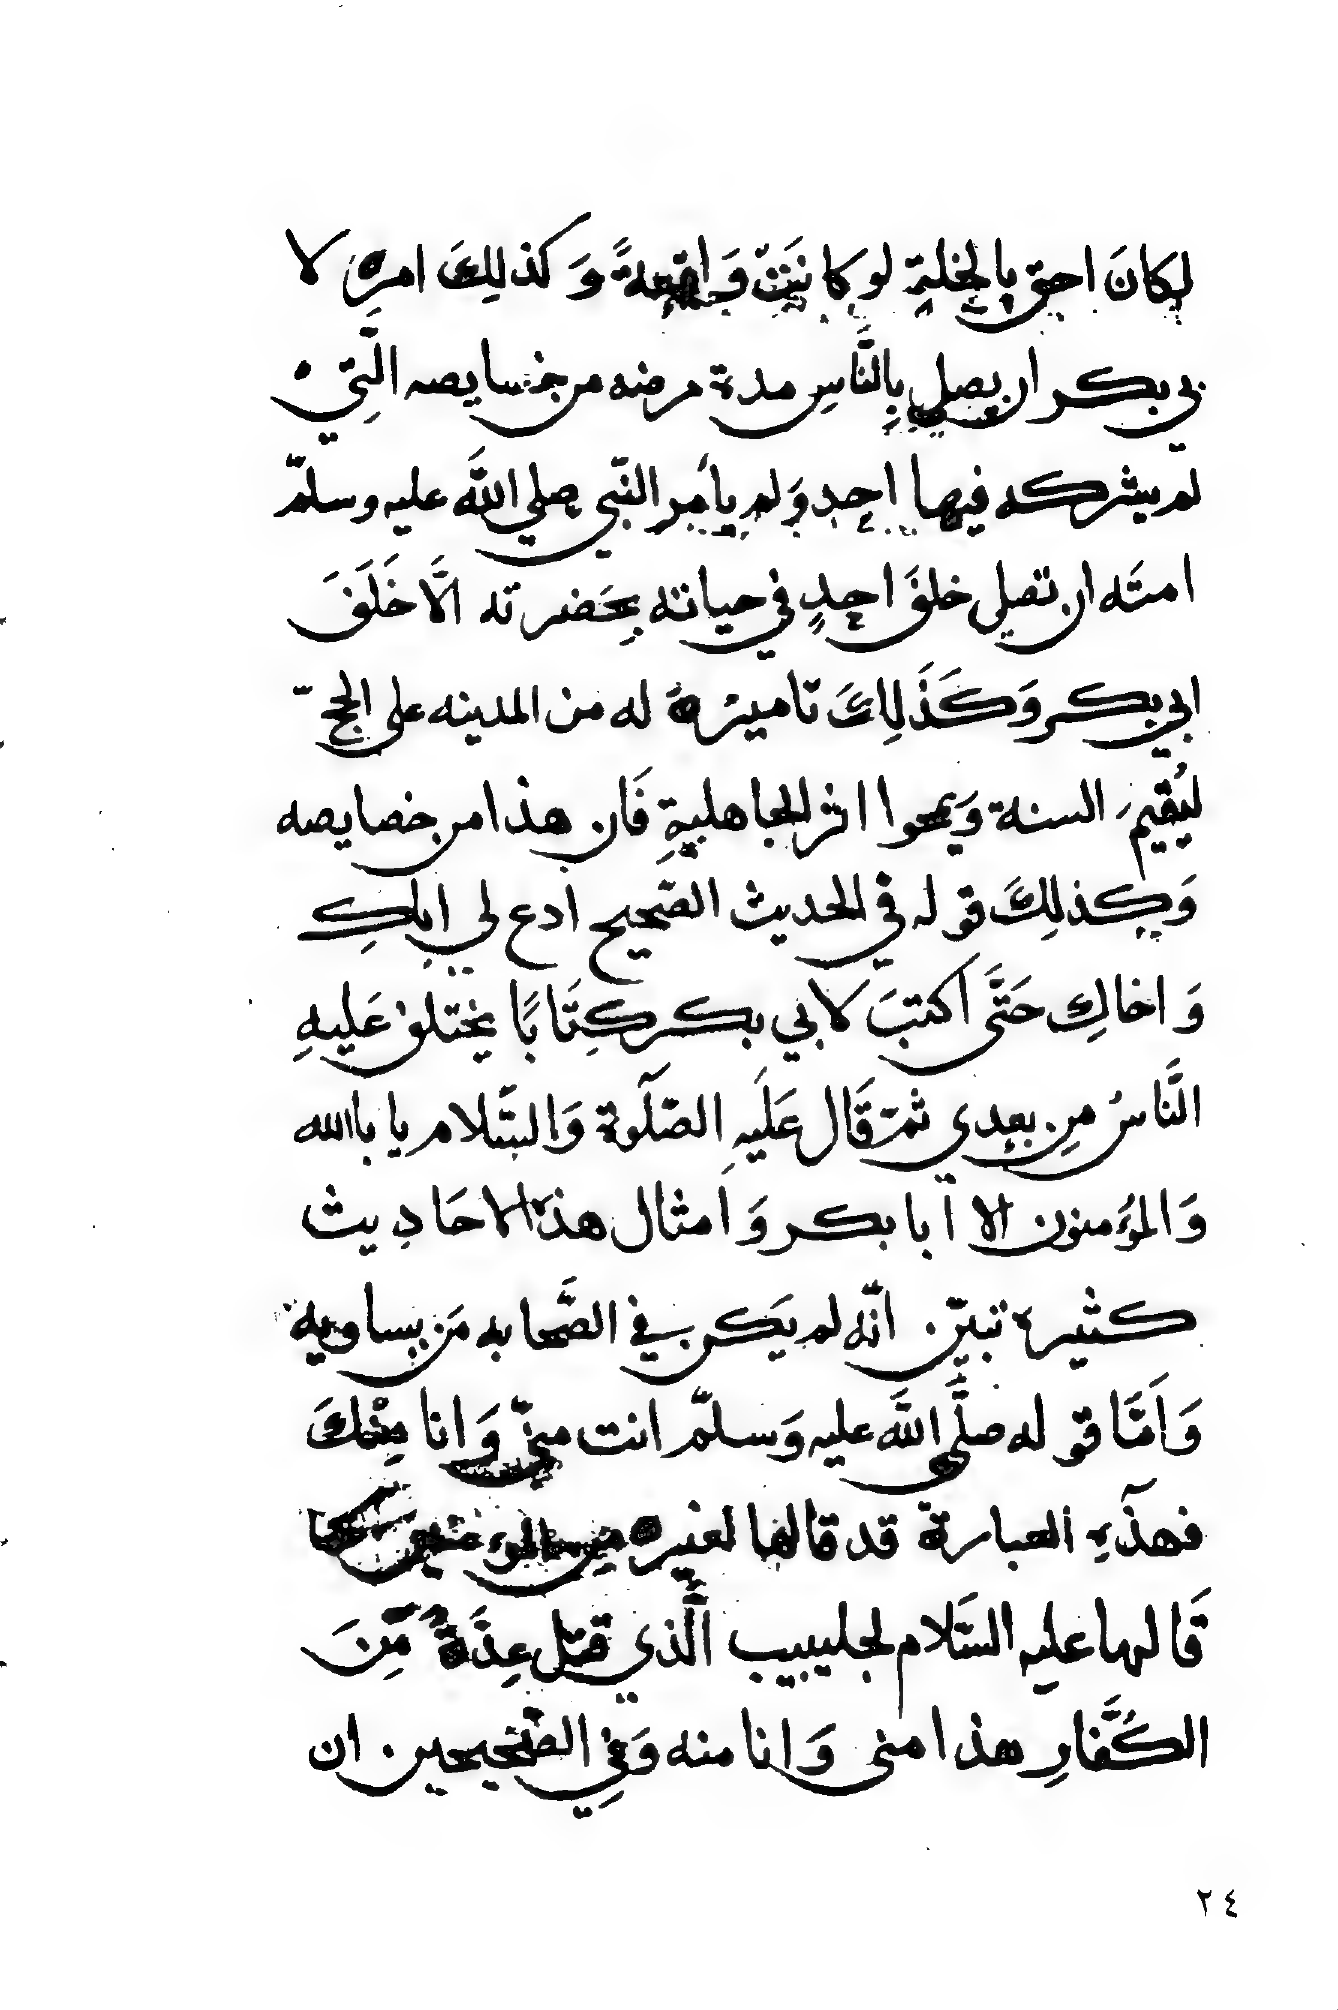 لكانَ احق بالخلةِ لو كانَتْ وَاقعةً وَكذلِكَ امرِه لا
بي بكر ان يصلي بِالنَّاسِ مدة مرضه من خصايصه الَّتِي
لم يشركه فيها احد وَلم يأمر النّبي صلي اللَّه عليه وسلمّ
امتَه ان تصلي خلفَ احدٍ في حياته بِحَضرته الَّا خَلَفَ
ابي بكر وَكَذَلِكَ تاميرُهَ له من المدينه علي الحج
ليُقيمَ السنة وَيمحوا اثر الجاهليةِ فَان هذا من خصايصه
وَكذلِكَ قوله في الحديث الصّحيح ادع لي اباكِ
وَاخاكِ حَتَّى اكتبَ لابي بكر كِتَابًا يختلف عَليهِ
النَّاسُ مِن بعدي ثمّ قَال عَلَيهِ الصّلٓوة وَالسّلام يابا الله
وَالمؤمنون الا ابا بكر وَامثال هذه الاحَادِيث
كثيرة تبيّن انّه لم يَكن في الصَّحابه مَن يساويه
وَاَمَّا قوله صلَّى اللَّه عليه وَسلمّ انت منّي وَانا مِنْكَ
فهذٓهِ العبارة قد قالها لغيره مِن المؤمنين كما
قَالها عليه السَّلام لجليبيب الَّذي قتل عِدَّةً مِّنَ
الكُفَّارِ هذا مني وَانا منه وَفِي الصّحيحين ان
٢٤